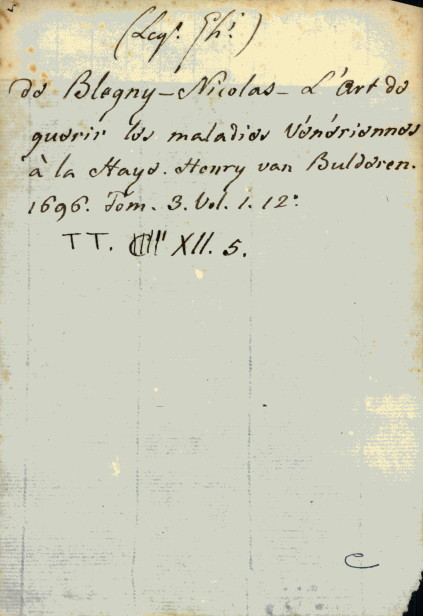 (Legº. Ghi.)
de Blegny - Nicolas - L'Art de
guerir les maladies Vénériennes
à la Haye. Henry van Bulderen.
1696. Tom. 3. Vol. 1. 12º.
TT. XII. 5.